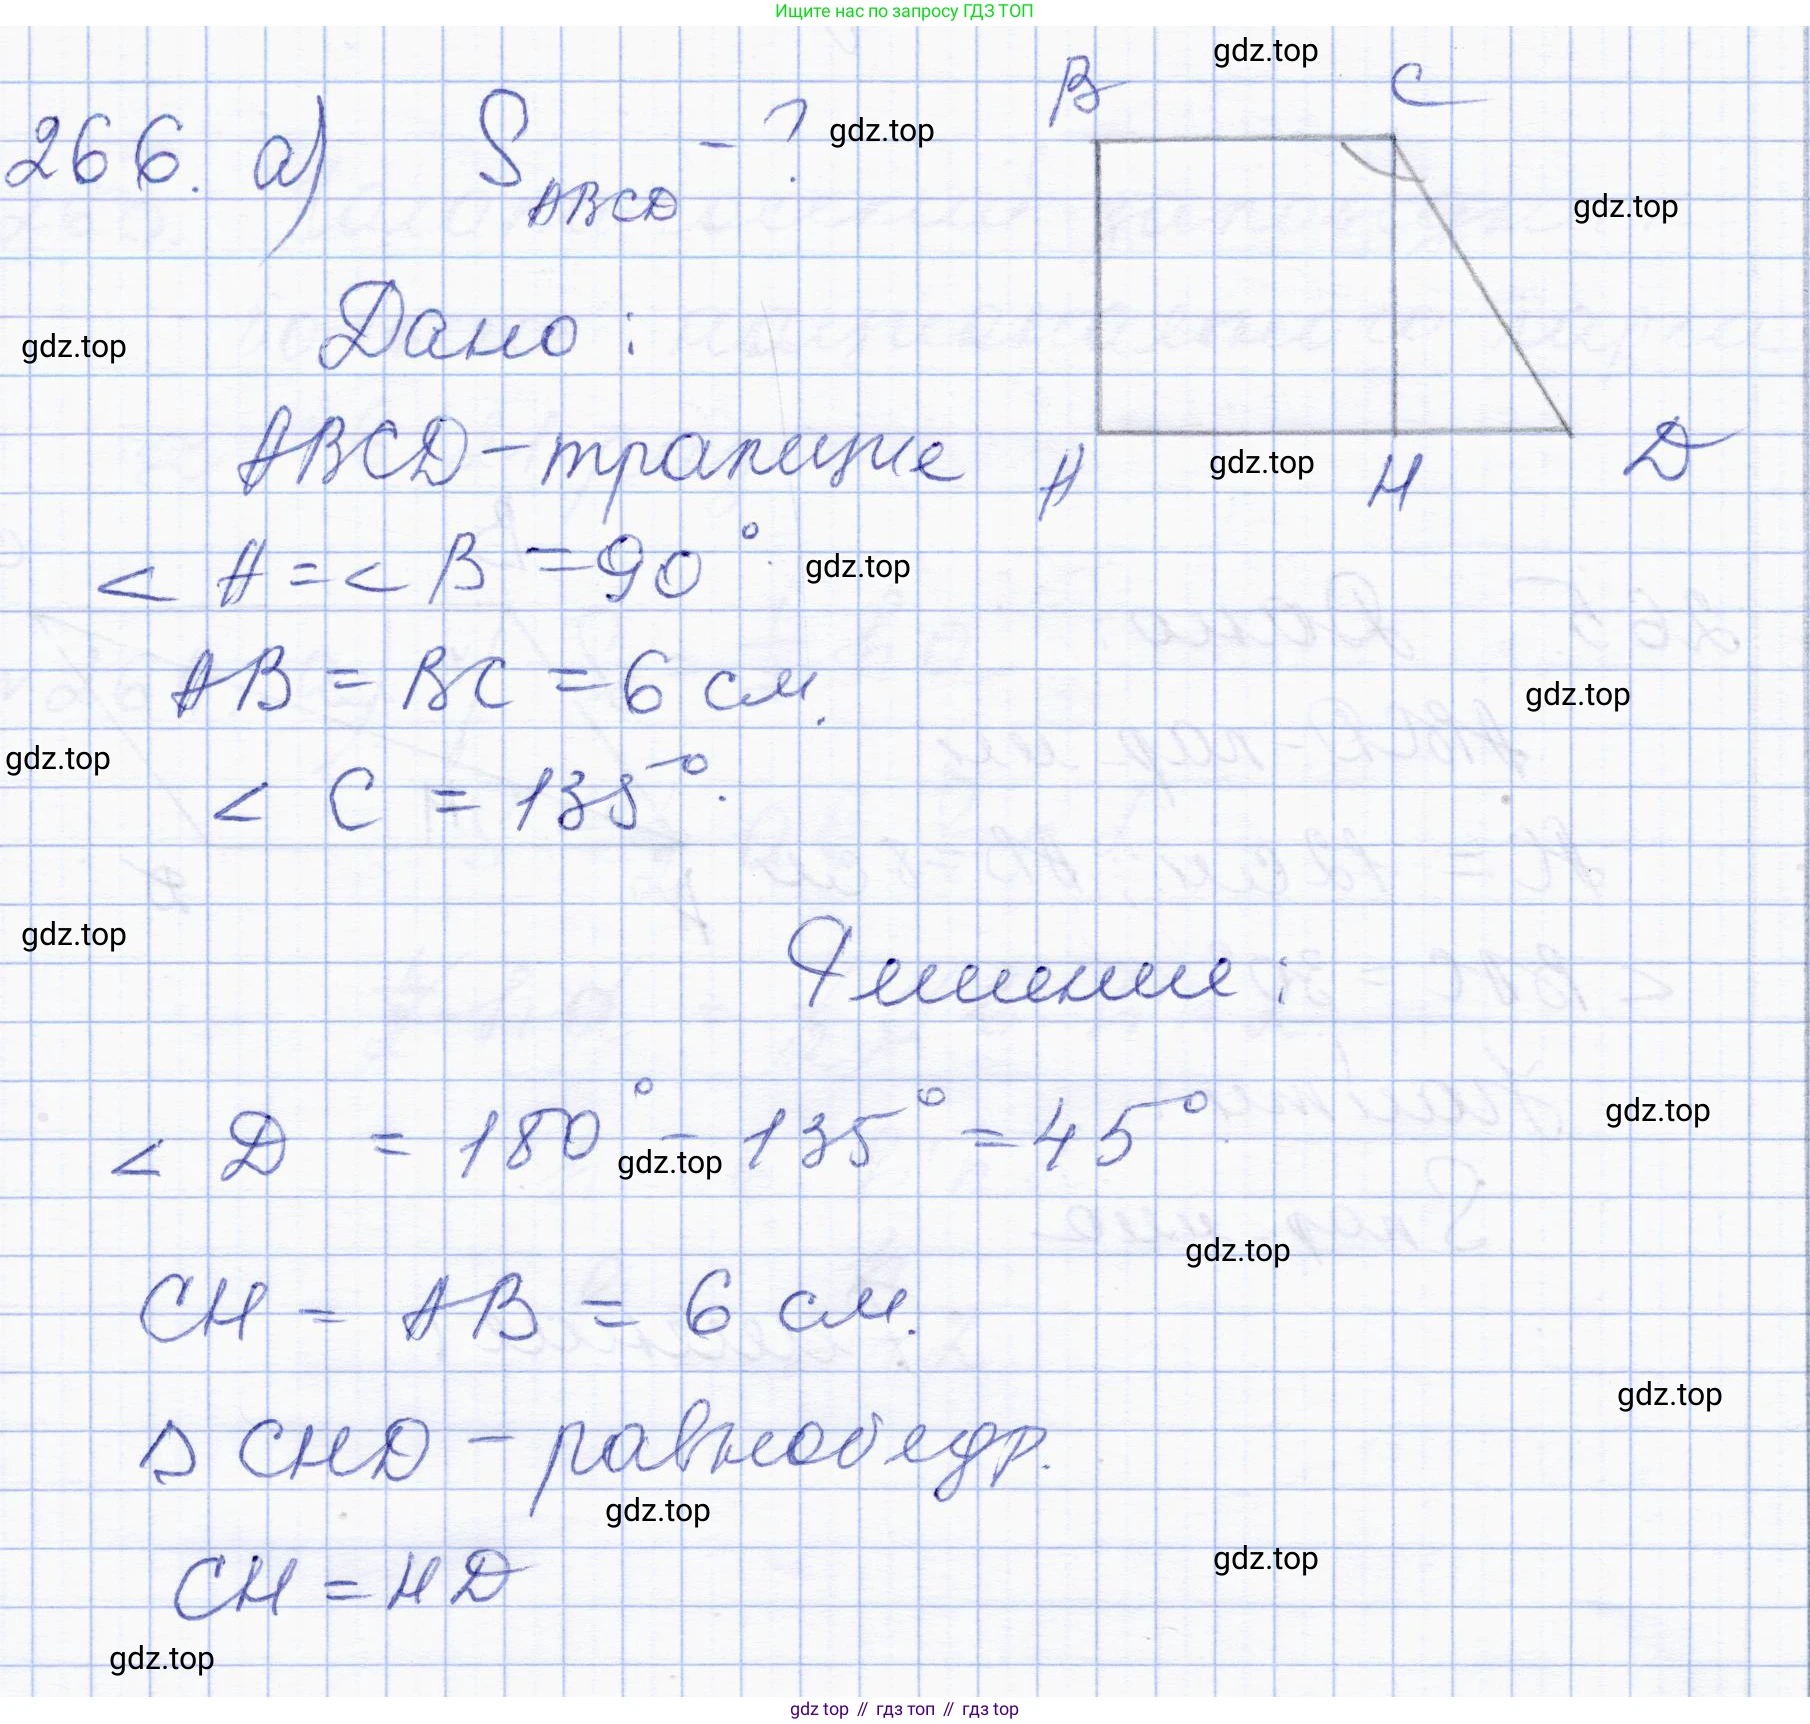 Ищите нас по запросу ГДЗ ТОП
gdz.top
B C
266. а) S ABCD - ? gdz.top
gdz.top
Дано:
gdz.top
ABCD - трапеция
A gdz.top H D
< A = < B = 90°. gdz.top
AB = BC = 6 см.
gdz.top
gdz.top
< C = 135°.
gdz.top
Решение:
< D = 180° - 135° = 45°.
gdz.top
gdz.top
gdz.top
CH = AB = 6 см.
gdz.top
△ CHD - равнобедр.
gdz.top
gdz.top
CH = HD
gdz.top
gdz top // гдз топ // гдз top